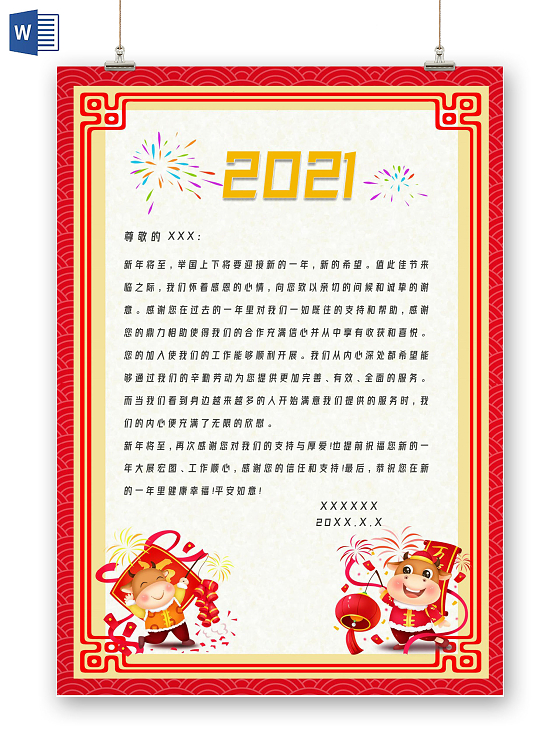 W
2021
尊敬的 XXX:
新年将至，举国上下将要迎接新的一年，新的希望。值此佳节来
临之际，我们怀着感恩的心情，向您致以亲切的问候和诚挚的谢
意。感谢您在过去的一年里对我们一如既往的支持和帮助，感谢
您的鼎力相助使得我们的合作充满信心并从中享有收获和喜悦。
您的加入使我们的工作能够顺利开展。我们从内心深处都希望能
够通过我们的辛勤劳动为您提供更加完善、有效、全面的服务。
而当我们看到身边越来越多的人开始满意我们提供的服务时，我
们的内心便充满了无限的欣慰。
新年将至，再次感谢您对我们的支持与厚爱!也提前祝福您新的一
年大展宏图、工作顺心，感谢您的信任和支持!最后，恭祝您在新
的一年里健康幸福!平安如意!
XXXXXX
20XX.X.X
万